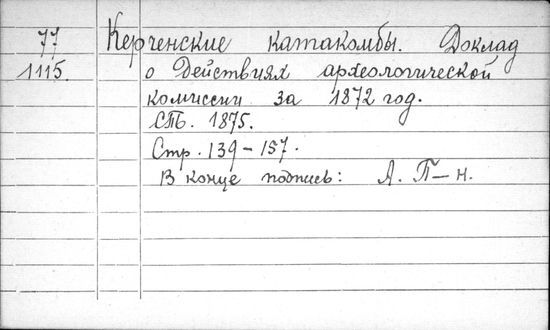 77 Керченские катакомбы. Доклад
1115. о Действиях археологической
комиссии за 1872 год.
СПб. 1875.
Стр. 139-157.
В конце подпись: А. П-н.